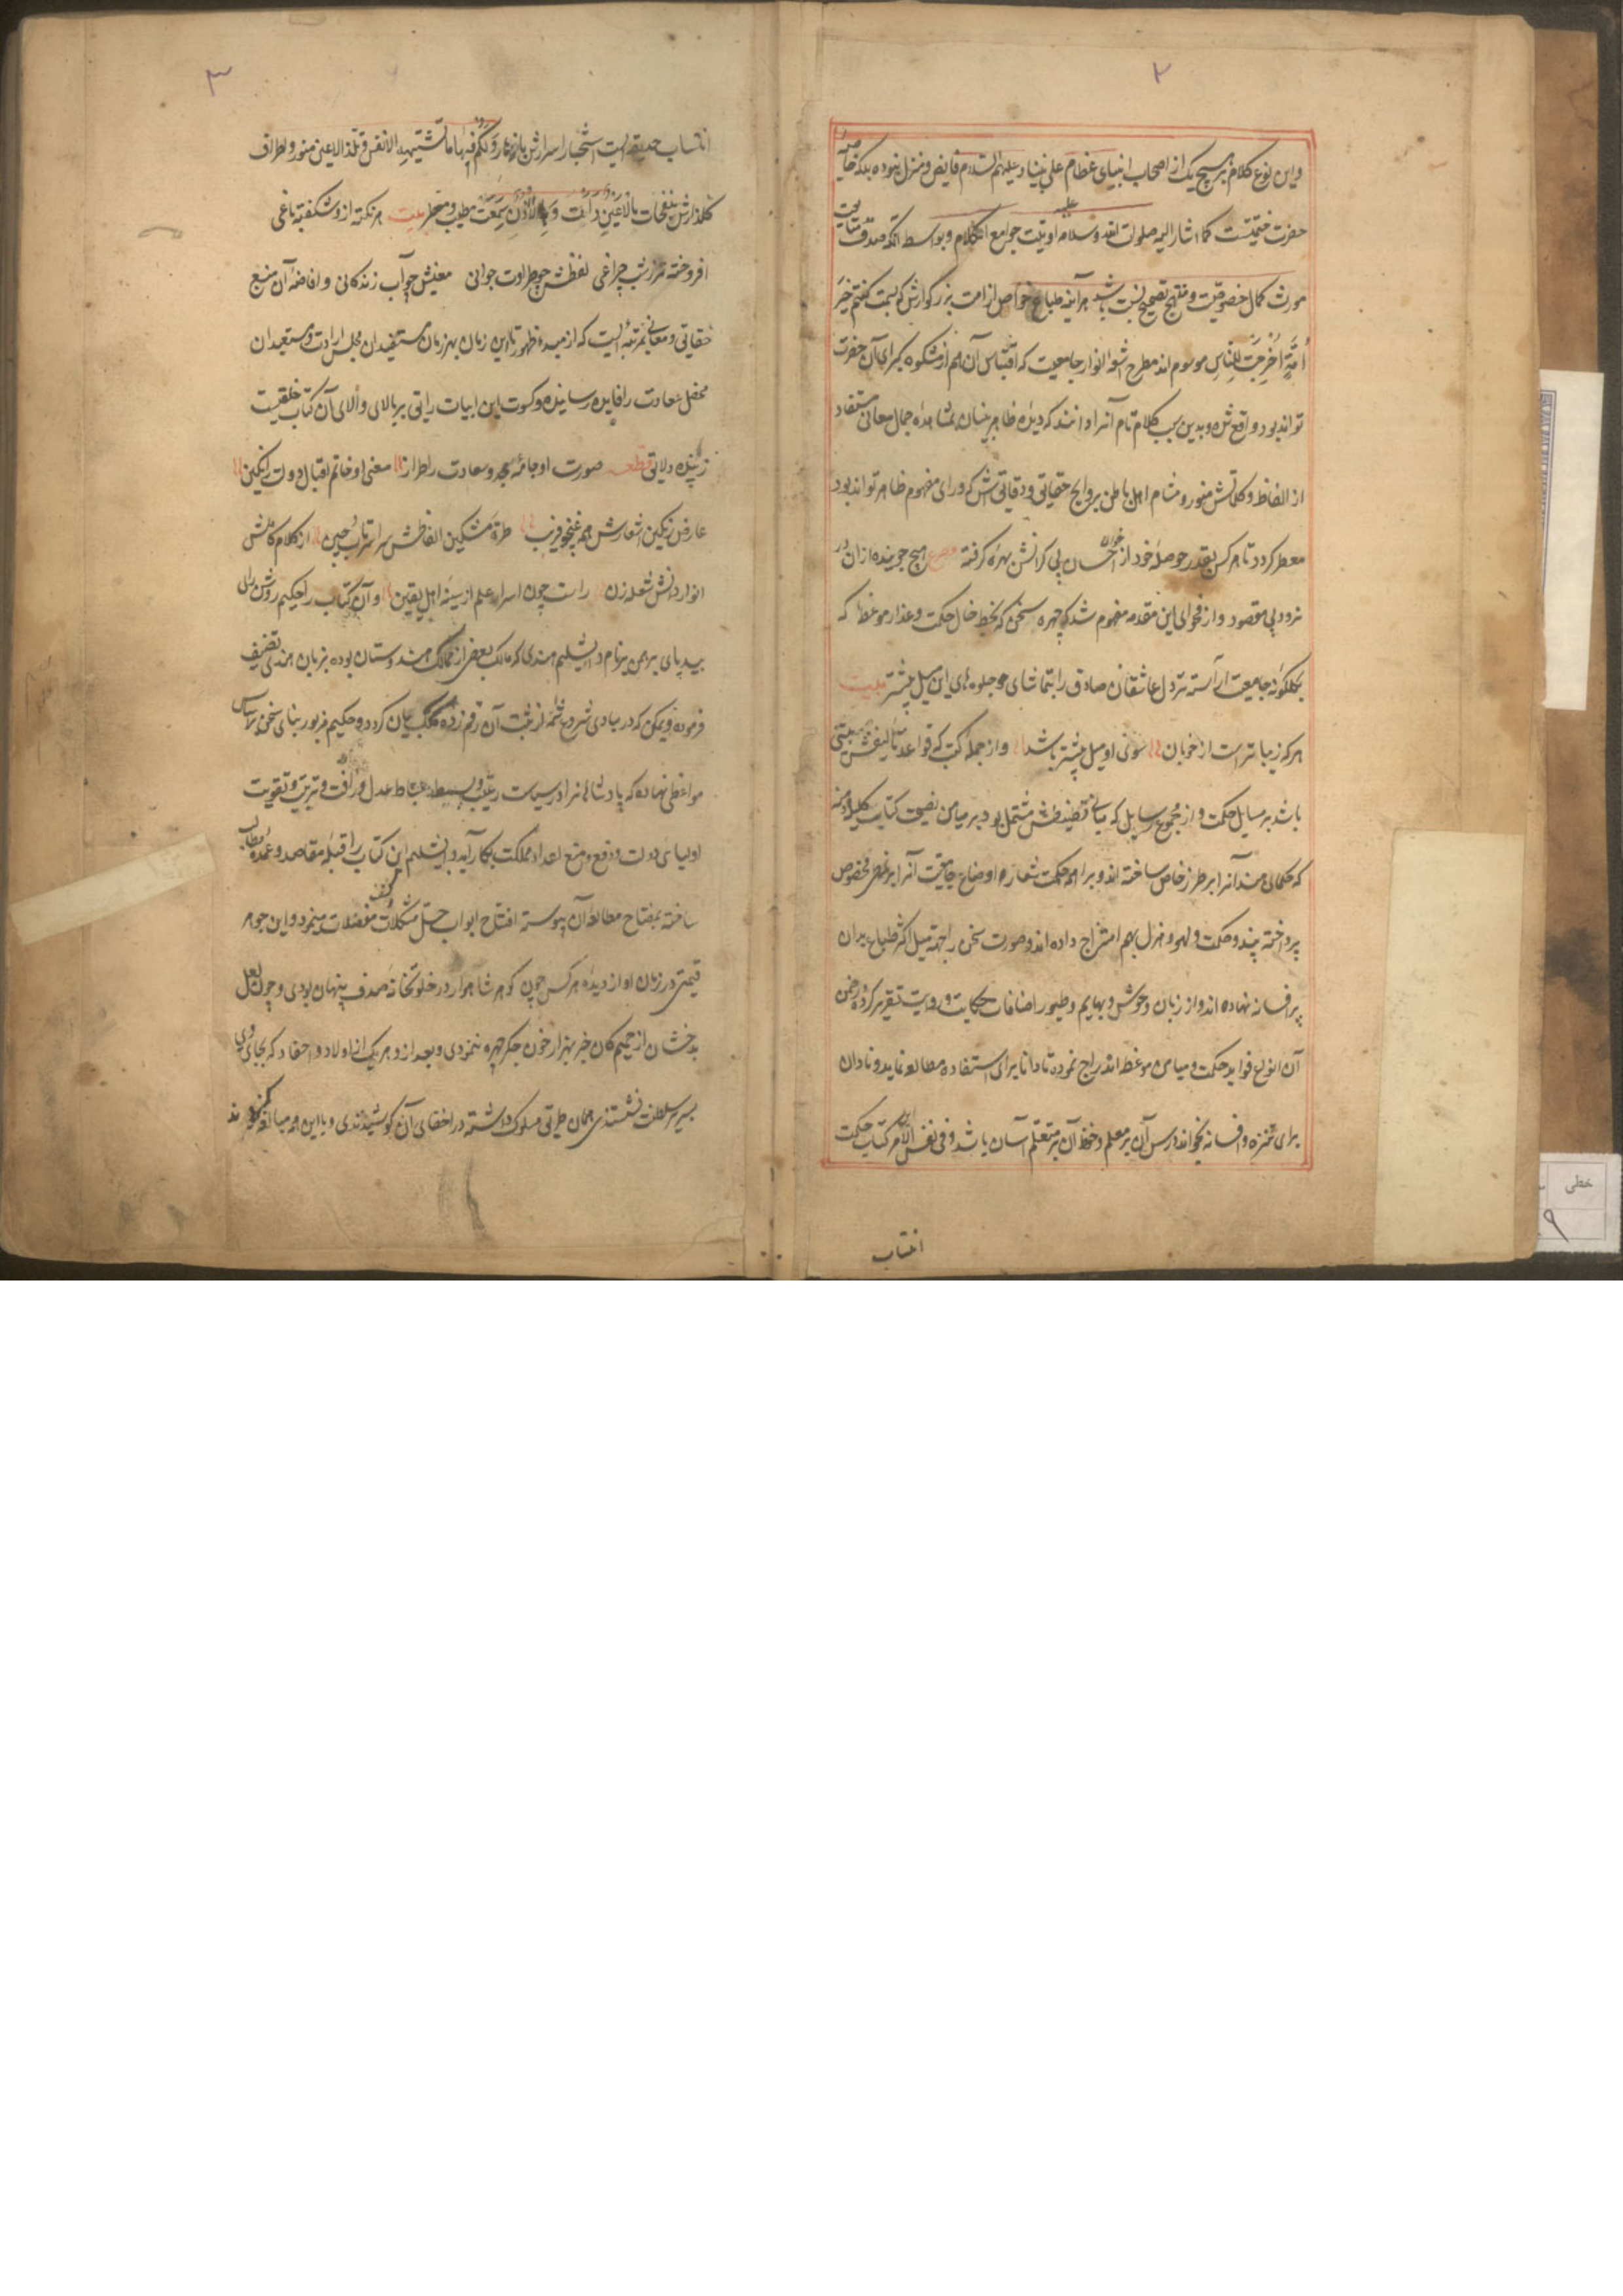 ۲
و این نوع کلام بر هیچ یک از اصحاب انبیای عظام علی نبینا و علیهم السلام فایض و منزل نبوده بلکه خاصه
حضرت ختمیتست کما اشار الیه صلوات الله و سلامه علیه اوتیت جوامع الکلم و بواسطه آنکه صدق متابعت
مورث کمال خصوصیت و منتج تصحیح نسبت باشد هر آینه طباع خواص از امت بزرگوارش که بسمت کنتم خیر
أمة أخرجت للناس موسوم اند مطرح اشعه انوار جامعیت که اقتباس آن هم از مشکوه کبرای آن حضرت
تواند بود واقع شده و بدین سبب کلام تام آنرا دانند که دیده ظاهر بینان بمشاهده جمال معانی مستفاد
از الفاظ و کلماتش منور و مشام اهل باطن بروایح حقایق و دقایقش که ورای مفهوم ظاهر تواند بود
معطر گردد تا هر کس بقدر حوصله خود از خوان احسان بی کرانش بهره گرفته مصرع هیچ جوینده ازان در
نرود بی مقصود و از فحوای این مقدمه مفهوم شد که چهره سخن که بخط خال حکمت و عذار موعظه که
بگلگونه جامعیت آراسته تر دل عاشقان صادق را بتماشای جلوه های این میل بیشتر بیت
هر که زیباتر است از خوبان سوی او میل بیشتر باشد و از جمله کتب که قواعد تالیفش مبتنی
باشد بر مسایل حکمت و از مجموع رسایل که مبانی مشتمل بود بر میامن نصیحت کتاب کلیله و دمنه
که حکمای هند آنرا بر طرز خاص ساخته اند و براهمه حکمت شعار اوضاع جامعیت آنرا بر نمطی مخصوص
پرداخته پند و حکمت و لهو و هزل بهم امتزاج داده اند و صورت سخن را جهة میل اکثر طباع بدان
بر افسانه نهاده اند و از زبان وحوش و بهایم و طیور اضافات حکایت و روایت تقریر کرده و در ضمن
آن انواع فواید حکمت و میامن موعظه اندراج نموده تا دانا برای استفاده مطالعه نماید و نادان
برای تنزه و افسانه بخواند و درس آن بر معلم و حفظ آن بر متعلم آسان باشد و فی نفس الامر آن کتاب حکمت
انتساب
۳
انتساب حدیقه ایست اشجار اسرارش بازهار و لکم فیها ما تشتهیه الانفس و تلذ الاعین منور و اطراف
گلزارش بنفحات مالاعین رأت و لا اذن سمعت مطیب و معطر بیت هر نکته ازو شکفته باغی
افروخته تر ز شب چراغی لفظش چو طراوت جوانی معنیش چو آب زندگانی و افاضه آن منبع
حقایق و معانی بمرتبه ایست که از مبدء ظهور تا این زمان بهر زمان مستفیدان مجلس ارادت و مستعیدان
محفل سعادت را فایده رسانیده و کسوت این ابیات رایق بر بالای والای آن کتاب خلقیت
زیبنده و لایق قطعه صورت او جامه مجد و سعادت را طراز معنی او خاتم اقبال و دولت را نگین
عارض رنگین اشعارش همه غنج و فریب طره مشکین الفاظش سراسر تاب و چین از کلام کاملش
انوار دانش شعله زن راست چون اسرار علم از سینه اهل یقین و آن کتاب را حکیم روشن رای
بیدپای برهمن بنام دابشلیم هندی که مالک بعضی از ممالک هندوستان بوده بزبان هندی تصنیف
فرموده و یمکن که در مبادی شروع شمه از ثبت آن رقم زده کلک بیان گردد و حکیم مزبور بنای سخن بر اساس
مواعظی نهاده که پادشاهانرا در سیاست رعیت و بسط بساط عدل و رافت و تربیت و تقویت
اولیای دولت و دفع و منع اعداء مملکت بکار آید و دابشلیم این کتاب را قبله مقاصد و عمده مطالب
ساخته بمفتاح مطالعه آن پیوسته افتتاح ابواب حل مشکلات و کشف معضلات مینمود و این جوهر
قیمتی در زمان او از دیده هر کس چون گوهر شاهوار در خلوتخانه صدف پنهان بودی و چون لعل
بدخشان از صمیم کان جز بهزار خون جگر چهره ننمودی و بعد از و هر یک از اولاد و احفاد که بجای وی
بسریر سلطنت نشستندی همان طریق مسلوک داشته در اخفای آن کوشیدندی و با این همه مبالغه کردند
خطی
۹